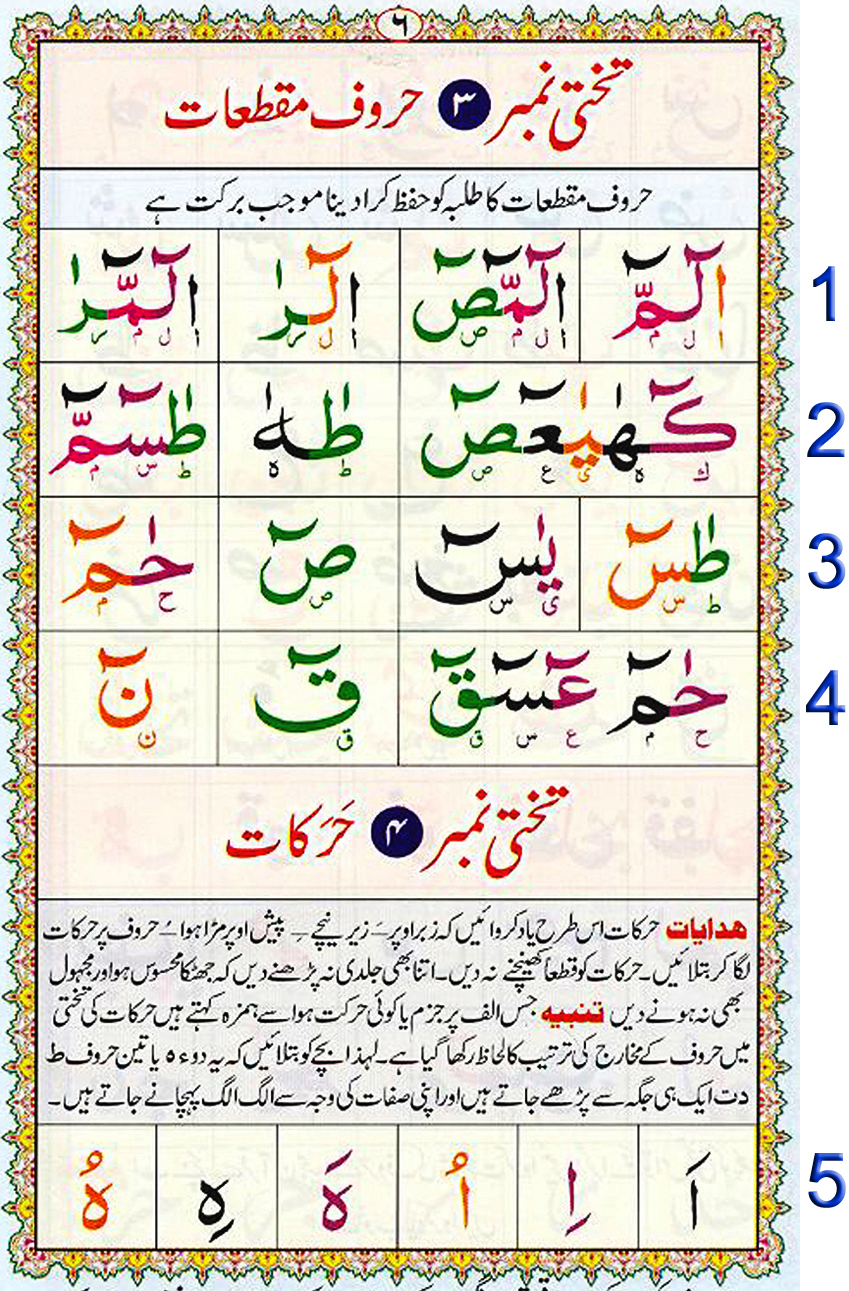 ۶
تختی نمبر ۳ حروف مقطعات
حروف مقطعات کا طلبہ کو حفظ کرا دینا موجب برکت ہے
الٓمّٓ الٓمّٓصٓ الٓرٰ الٓمّٓرٰ
ا ل م ا ل م ص ا ل ر ا ل م ر
1
كٓهٰيٰعٓصٓ طٰهٰ طٰسٓمّٓ
ك ه ی ع ص ط ه ط س م
2
طٰسٓ يٰسٓ صٓ حٰمٓ
ط س ی س ص ح م
3
حٰمٓ عٓسٓقٓ قٓ نٓ
ح م ع س ق ق ن
4
تختی نمبر ۴ حَرَکات
ھدایات حرکات اس طرح یاد کروائیں کہ زبر اوپر ـَ زیر نیچے ـِ پیش اوپر مڑا ہوا ـُ حروف پر حرکات
لگا کر بتلائیں۔ حرکات کو قطعاً کھینچنے نہ دیں۔ اتنا بھی جلدی نہ پڑھنے دیں کہ جھٹکا محسوس ہو اور مجہول
بھی نہ ہونے دیں تنبیہ جس الف پر جزم یا کوئی حرکت ہو اسے ہمزہ کہتے ہیں حرکات کی تختی
میں حروف کے مخارج کی ترتیب کا لحاظ رکھا گیا ہے۔ لہٰذا بچے کو بتلائیں کہ یہ دو ء ہ یا تین حروف ط
د ت ایک ہی جگہ سے پڑھے جاتے ہیں اور اپنی صفات کی وجہ سے الگ الگ پہچانے جاتے ہیں۔
اَ اِ اُ هَ هِ هُ
5